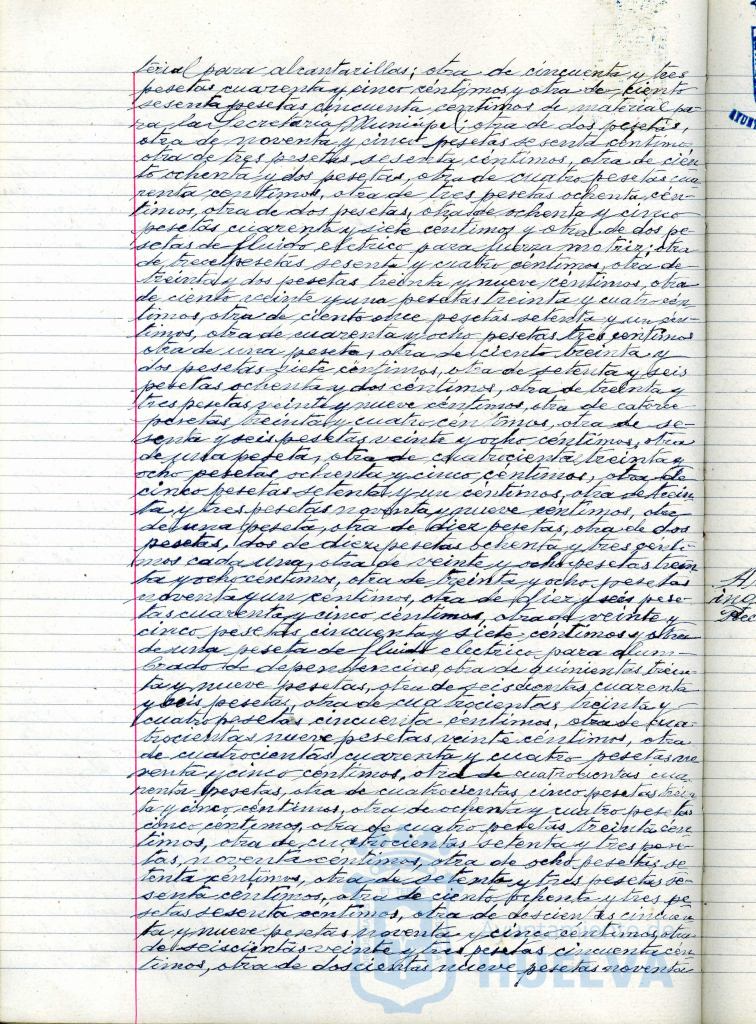 terial para alcantarillas; otra de cincuenta y tres
pesetas cuarenta y cinco céntimos y otra de ciento
sesenta pesetas cincuenta céntimos de material pa-
ra la Secretaria Municipal; otra de dos pesetas,
otra de noventa y cinco pesetas sesenta céntimos
otra de tres pesetas sesenta céntimos, otra de cien-
to ochenta y dos pesetas, otra de cuatro pesetas cua-
renta céntimos, otra de tres pesetas ochenta cén-
timos, otra de dos pesetas, otra de ochenta y cinco
pesetas cuarenta y siete céntimos y otra de dos pe-
setas de fluido electrico para fuerza motriz; otra
de trece pesetas sesenta y cuatro céntimos, otra de
treinta y dos pesetas treinta y nueve céntimos, otra
de ciento veinte y una pesetas treinta y cuatro cén-
timos, otra de ciento once pesetas setenta y un cén-
timos, otra de cuarenta y ocho pesetas tres céntimos
otra de una peseta, otra de ciento treinta y
dos pesetas siete céntimos, otra de setenta y seis
pesetas ochenta y dos céntimos, otra de treinta y
tres pesetas veinte y nueve céntimos, otra de catorce
pesetas treinta y cuatro céntimos, otra de se-
senta y seis pesetas veinte y ocho céntimos, otra
de una peseta, otra de cuatrocientas treinta y
ocho pesetas ochenta y cinco céntimos, otra de
cinco pesetas setenta y un céntimos, otra de trein-
ta y tres pesetas noventa y nueve céntimos, otra
de una peseta, otra de diez pesetas, otra de dos
pesetas, dos de diez pesetas ochenta y tres cénti-
mos cada una, otra de veinte y ocho pesetas trein-
ta y ocho céntimos, otra de treinta y ocho pesetas
noventa y un céntimos, otra de diez y seis pese-
tas cuarenta y cinco céntimos, otra de veinte y
cinco pesetas cincuenta y siete céntimos y otra
de una peseta de fluido electrico para alum-
brado de dependencias, otra de quinientas trein-
ta y nueve pesetas, otra de seiscientas cuarenta
y seis pesetas, otra de cuatrocientas treinta y
cuatro pesetas cincuenta céntimos, otra de cua-
trocientas nueve pesetas veinte céntimos, otra
de cuatrocientas cuarenta y cuatro pesetas no-
venta y cinco céntimos, otra de cuatrocientas cua-
renta pesetas, otra de cuatrocientas cinco pesetas trein-
ta y cinco céntimos, otra de ochenta y cuatro pesetas
cinco céntimos, otra de cuatro pesetas treinta cén-
timos, otra de cuatrocientas setenta y tres pese-
tas, noventa céntimos, otra de ocho pesetas se-
tenta céntimos, otra de setenta y tres pesetas se-
senta céntimos, otra de ciento ochenta y tres pe-
setas sesenta céntimos, otra de doscientas cincuen-
ta y nueve pesetas noventa y cinco céntimos, otra
de seiscientas veinte y tres pesetas cincuenta cén-
timos, otra de doscientas nueve pesetas noventa
Ayuntamiento de
HUELVA